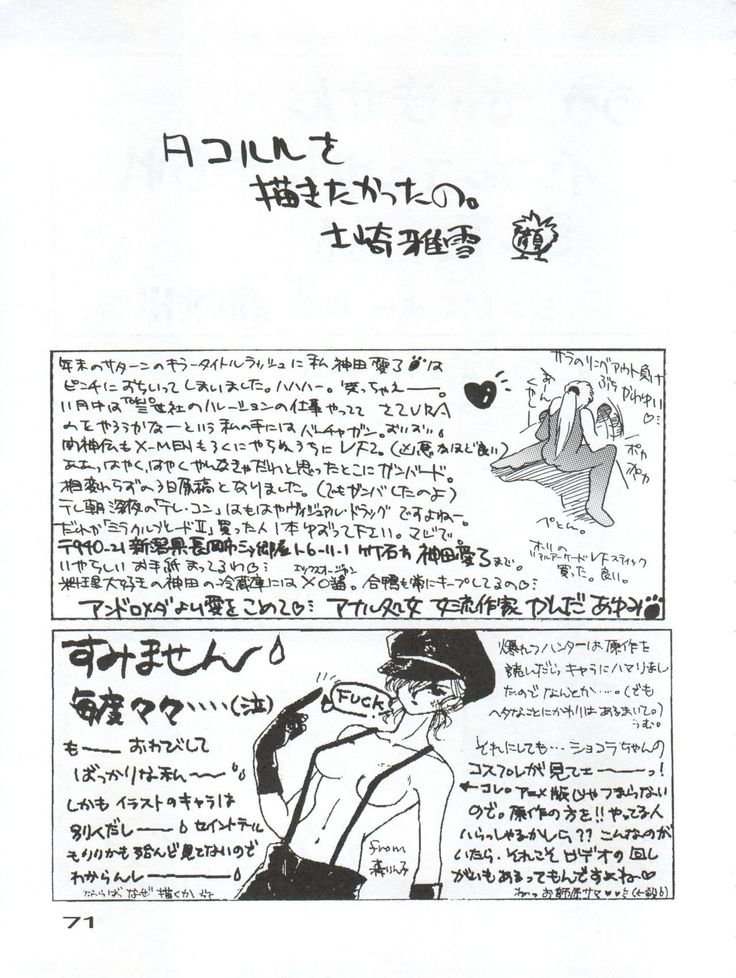 月コルルを
描きたかったの。
土崎雅雪
年末のサターンのキラータイトルラッシュに私 神田愛了は
ピンチにおちいってしまいました。ハハハー。笑っちゃえー。
11月中は
社のハレーションの仕事やってて さてURA
のをやろうかなーという私の手にはバーチャガン。おいおい。
闘神伝も X-MENもろくにやらぬうちに
(凶悪なほど良い)
あぁっはやく、はやくやんなきゃだわと思ったとこにガンバード。
相変わらずの3日原稿となりました。(でもガンバしたのよ)
テレ朝 深夜の「テレ・コン」はもはやヴィジュアル・ドラッグ ですよねー。
だれか「ミラクルブレードII」買った人 1本ゆずって下さい。マジで。
いやらしい お手紙 まってるわ♡
料理大好きの神田の冷蔵庫にはXO醤。合鴨も常にキープしてるの♡
アンドロメダより愛をこめて♡ アナル処女 女流作家 かんだ あゆみ
サラのリングアウト負け
ぷち かわゆい
♡
あーん
くやしー
ポカ
ポカ
ぺたん。
買った。良い。
すみません
毎度々々‥‥(泣)
も── おわびして
ばっかりな私──
しかも イラストのキャラは
別くだし── セイントテール
も りりかも 殆んど見てないので
わからんし───
ならば なぜ 描くか
FUCK!
from
森りん子
爆れつハンターは原作を
読んだら キャラにハマリまし
たので なんとか‥‥。(でも
ヘタなことにかわりはあるまいて。)
うむ。
それにしても… ショコラちゃんの
コスプレが見てェ──っ!
←コレ。アニメ版じゃつまらない
ので。原作の方を!! やってる人
いらっしゃるかしら?? こんなのが
いたら、それこそ ビデオの回し
がいもあるってもんですよね♡
ねっ お師匠サマ♡♡
71